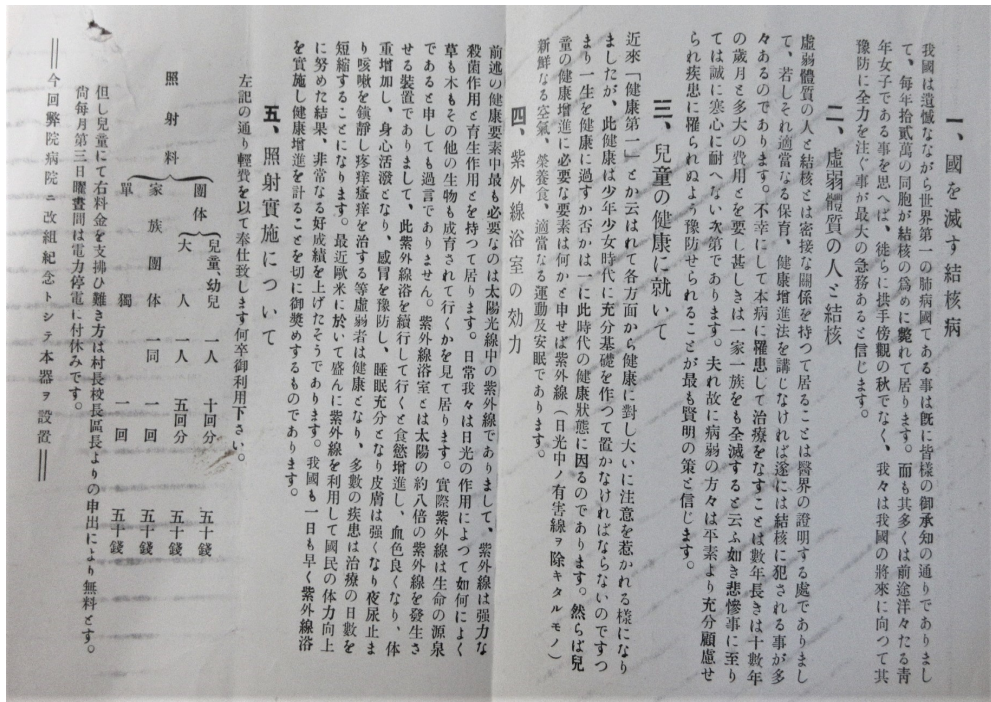 一、國を滅す結核病
我國は遺憾ながら世界第一の肺病國てある事は旣に皆樣の御承知の通りでありまし
て、每年拾貳萬の同胞が結核の爲めに斃れて居ります。而も其多くは前途洋々たる靑
年女子である事を思へば、徒らに拱手傍觀の秋でなく、我々は我國の將來に向つて其
豫防に全力を注ぐ事が最大の急務あると信じます。
二、虛弱體質の人と結核
虛弱體質の人と結核とは密接な關係を持つて居ることは醫界の證明する處でありまし
て、若しそれ適當なる保育、健康增進法を講じなければ遂には結核に犯される事が多
々あるのであります。不幸にして本病に罹患して治療をなすことは數年長きは十數年
の歲月と多大の費用とを要し甚しきは一家一族をも全滅すると云ふ如き悲慘事に至り
ては誠に寒心に耐へない次第であります。夫れ故に病弱の方々は平素より充分顧慮せ
られ疾患に罹られぬよう豫防せられることが最も賢明の策と信じます。
三、兒童の健康に就いて
近來「健康第一」とか云はれて各方面から健康に對し大いに注意を惹かれる樣になり
ましたが、此健康は少年少女時代に充分基礎を作つて置かなければならないのですつ
まり一生を健康に過すか否かは一に此時代の健康狀態に因るのであります。然らば兒
童の健康增進に必要な要素は何かと申せば紫外線(日光中ノ有害線ヲ除キタルモノ)
新鮮なる空氣、榮養食、適當なる運動及安眠であります。
四、紫外線浴室の効力
前述の健康要素中最も必要なのは太陽光線中の紫外線でありまして、紫外線は强力な
殺菌作用と育生作用とを持つて居ります。日常我々は日光の作用によつて如何によく
草も木もその他の生物も成育されて行くかを見て居ります。實際紫外線は生命の源泉
であると申しても過言でありません。紫外線浴室とは太陽の約八倍の紫外線を發生さ
せる裝置でありまして、此紫外線浴を續行して行くと食慾增進し、血色良くなり、体
重增加し、身心活潑となり、感冒を豫防し、睡眠充分となり皮膚は强くなり夜尿止ま
り咳嗽を鎭靜し疼痒瘙痒を治する等虛弱者は健康となり、多數の疾患は治療の日數を
短縮することになります。最近歐米に於いて盛んに紫外線を利用して國民の体力向上
に努めた結果、非常なる好成績を上げたそうであります。我國も一日も早く紫外線浴
を實施し健康增進を計ることを切に御奬めするものであります。
五、照射實施について
左記の通り輕費を以て奉仕致します何卒御利用下さい。
照射料
團体 兒童、幼兒 一人 十回分 五十錢
大人 一人 五回分 五十錢
家族團体 一同 一回 五十錢
單獨 一回 五十錢
但し兒童にて右料金を支拂ひ難き方は村長校長區長よりの申出により無料とす。
尙每月第三日曜晝間は電力停電に付休みです。
══今回弊院病院ニ改組紀念トシテ本器ヲ設置══